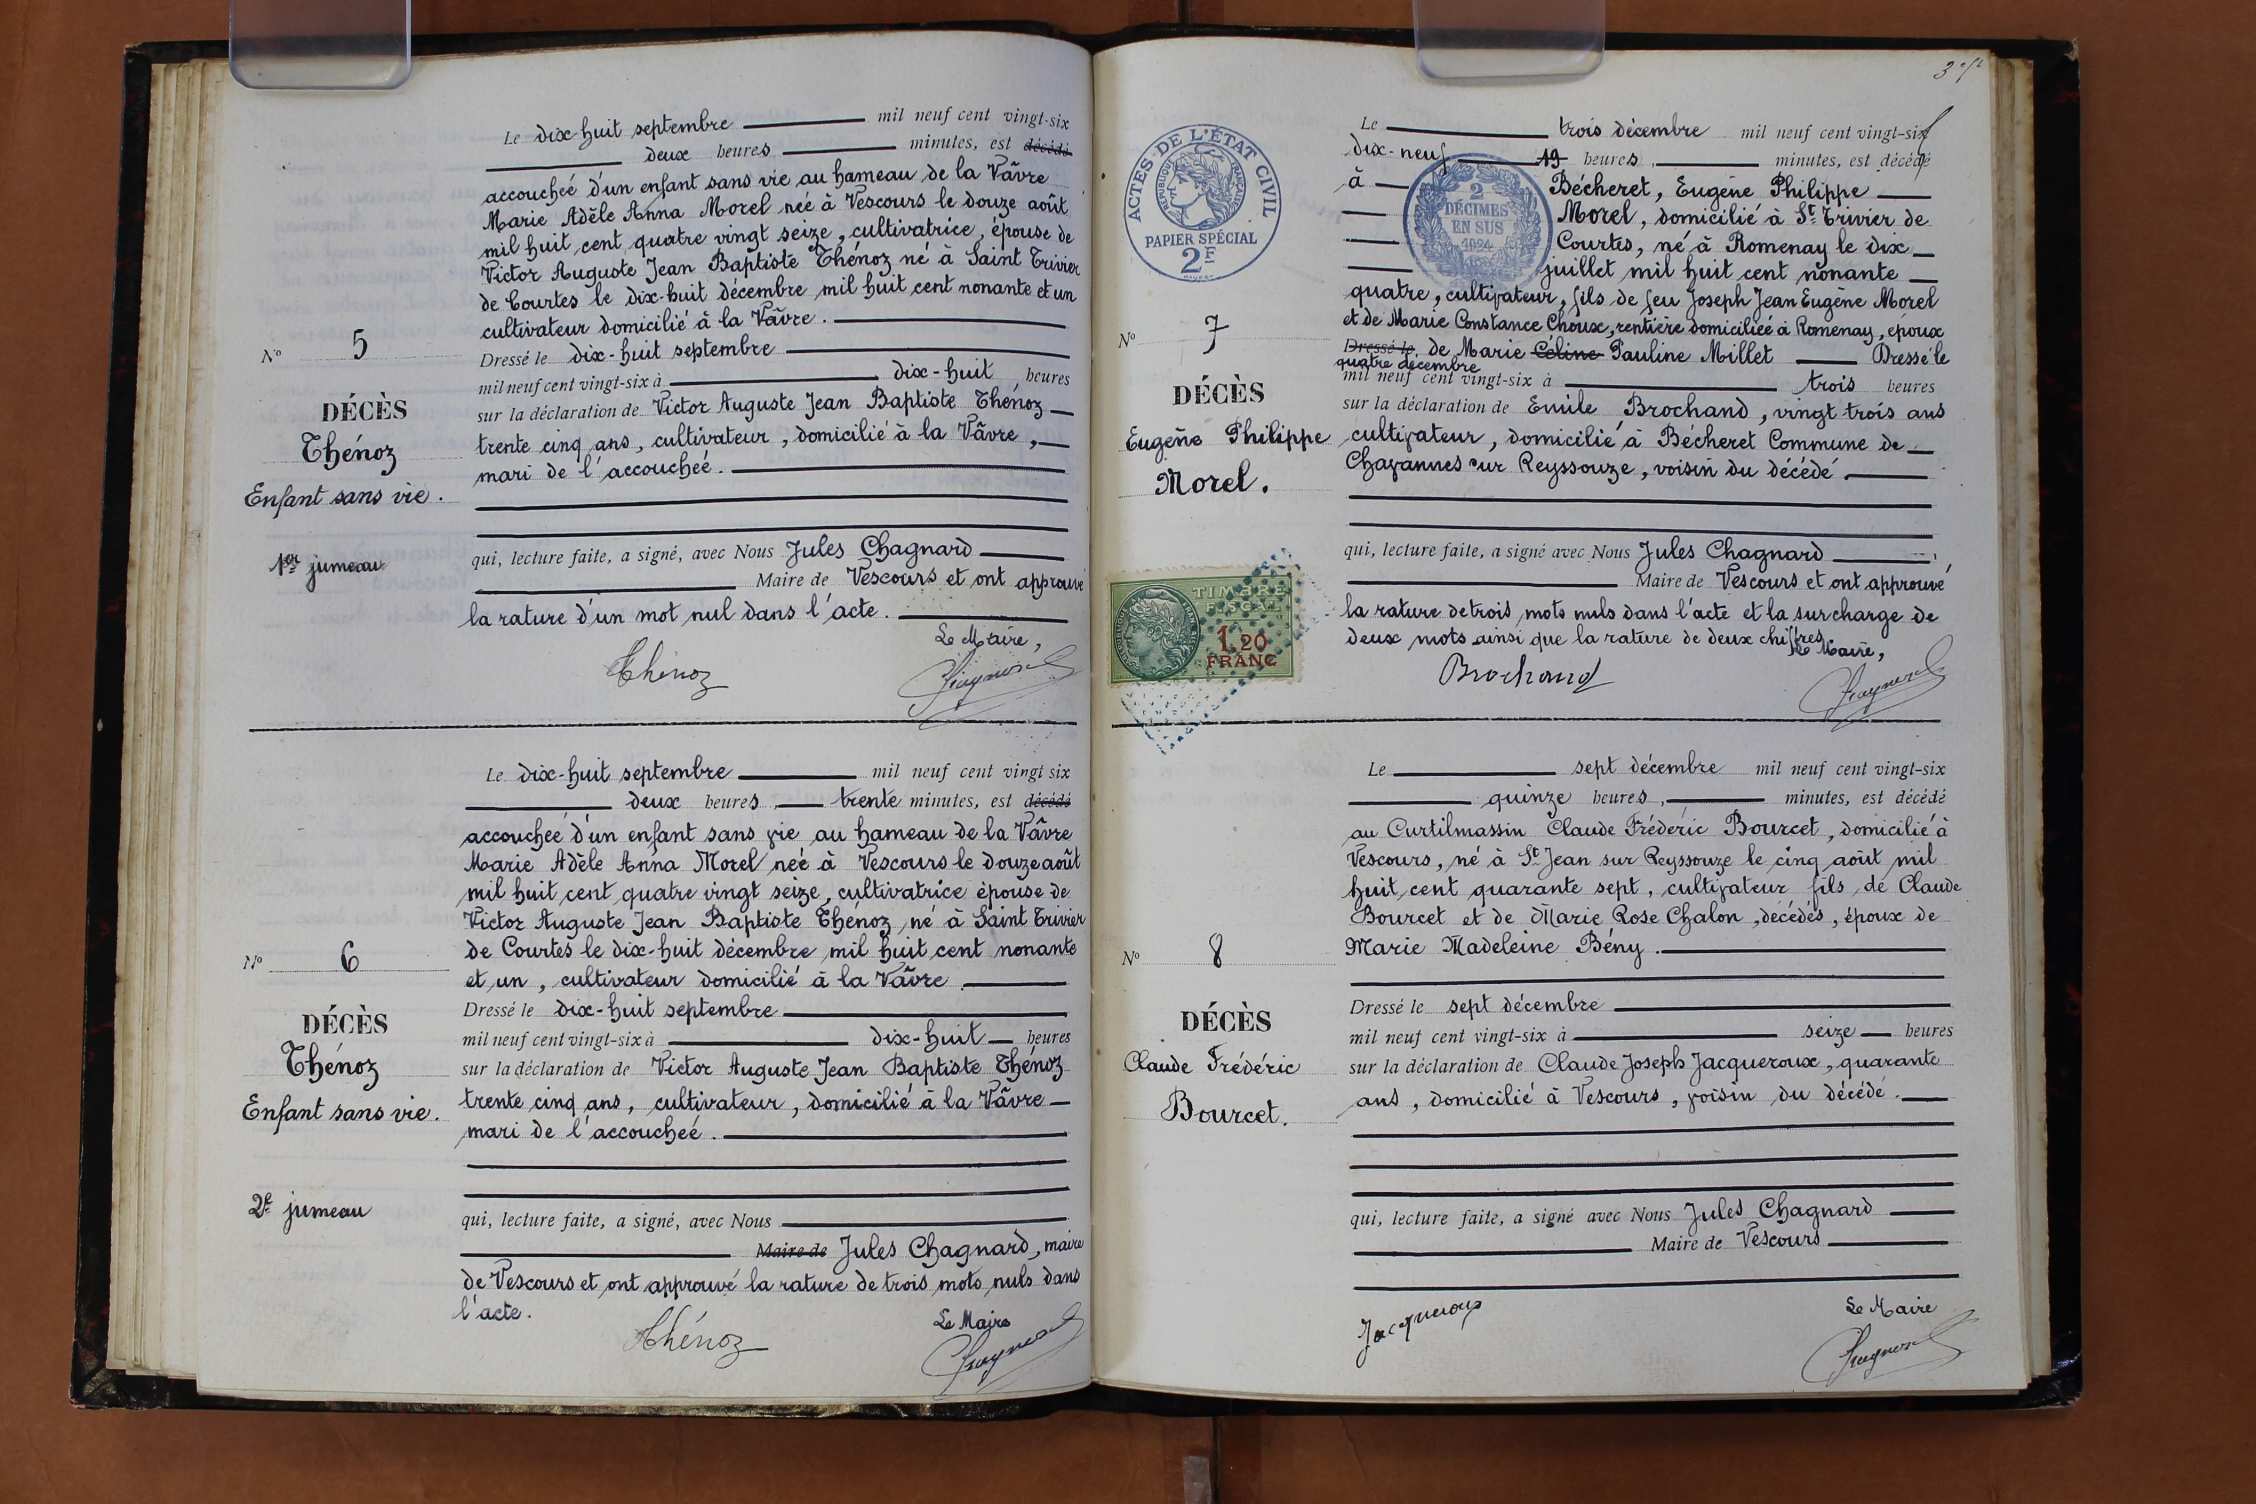 Le dix-huit septembre mil neuf cent vingt-six
deux heures minutes, est décédé
accoucheé d'un enfant sans vie au hameau de la Vâvre
Marie Adèle Anna Morel neé à Vescours le douze août
mil huit cent quatre vingt seize, cultivatrice, épouse de
Victor Auguste Jean Baptiste Thénoz né à Saint Trivier
de Courtes le dix-huit décembre mil huit cent nonante et un
cultivateur domicilié à la Vâvre.
Nº 5
Dressé le dix-huit septembre
mil neuf cent vingt-six à dix-huit heures
DÉCÈS
Thénoz
Enfant sans vie.
1er jumeau
sur la déclaration de Victor Auguste Jean Baptiste Thénoz
trente cinq ans, cultivateur, domicilié à la Vâvre,
mari de l'accoucheé.
qui, lecture faite, a signé, avec Nous Jules Chagnard
Maire de Vescours et ont approuvé
la rature d'un mot nul dans l'acte.
Le Maire,
Thénoz Chagnard
Le dix-huit septembre mil neuf cent vingt six
deux heures, trente minutes, est décédé
accoucheé d'un enfant sans vie au hameau de la Vâvre
Marie Adèle Anna Morel neé à Vescours le douze août
mil huit cent quatre vingt seize, cultivatrice épouse de
Victor Auguste Jean Baptiste Thénoz né à Saint Trivier
de Courtes le dix-huit décembre mil huit cent nonante
et un, cultivateur domicilié à la Vâvre.
Nº 6
Dressé le dix-huit septembre
mil neuf cent vingt-six à dix-huit heures
DÉCÈS
Thénoz
Enfant sans vie.
2e jumeau
sur la déclaration de Victor Auguste Jean Baptiste Thénoz
trente cinq ans, cultivateur, domicilié à la Vâvre
mari de l'accoucheé.
qui, lecture faite, a signé, avec Nous
Maire de Jules Chagnard, maire
de Vescours et ont approuvé la rature de trois mots nuls dans
l'acte.
Le Maire
Thénoz Chagnard
ACTES DE L'ÉTAT CIVIL
RÉPUBLIQUE FRANÇAISE
PAPIER SPÉCIAL
2F
2
DÉCIMES
EN SUS
1924
Le trois décembre mil neuf cent vingt-six
dix-neuf 19 heures, minutes, est décédé
à Bécheret, Eugène Philippe
Morel, domicilié à St Trivier de
Courtes, né à Romenay le dix
juillet mil huit cent nonante
quatre, cultivateur, fils de feu Joseph Jean Eugène Morel
et de Marie Constance Choux, rentière domiciliéé à Romenay, époux
Dressé le de Marie Céline Pauline Millet Dressé le
quatre décembre
mil neuf cent vingt-six à trois heures
Nº 7
DÉCÈS
Eugène Philippe
Morel.
sur la déclaration de Emile Brochand, vingt trois ans
cultivateur, domicilié à Bécheret Commune de
Chavannes sur Reyssouze, voisin du décédé
qui, lecture faite, a signé avec Nous Jules Chagnard
Maire de Vescours et ont approuvé
la rature de trois mots nuls dans l'acte et la surcharge de
deux mots ainsi que la rature de deux chiffres.
Le Maire,
Brochand Chagnard
TIMBRE
FISCAL
1,20
FRANC
Le sept décembre mil neuf cent vingt-six
quinze heures, minutes, est décédé
au Curtilmassin Claude Frédéric Bourcet, domicilié à
Vescours, né à St Jean sur Reyssouze le cinq août mil
huit cent quarante sept, cultivateur fils de Claude
Bourcet et de Marie Rose Chalon, décédés, époux de
Marie Madeleine Bény.
Nº 8
Dressé le sept décembre
mil neuf cent vingt-six à seize heures
DÉCÈS
Claude Frédéric
Bourcet.
sur la déclaration de Claude Joseph Jacqueroux, quarante
ans, domicilié à Vescours, voisin du décédé.
qui, lecture faite, a signé avec Nous Jules Chagnard
Maire de Vescours
Le Maire
Jacqueroux Chagnard